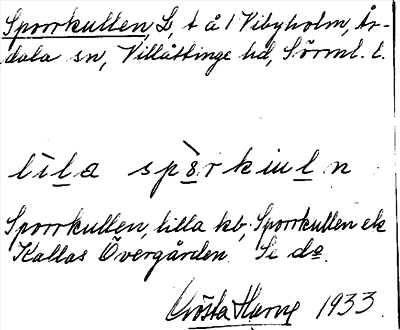 Sporrkullen, L, t å 1 Vibyholm, År-
dala sn, Villåttinge hd, Sörml. l.
līla spo̖rkiuln
Sporrkullen, lilla kb, Sporrkullen el
Kallas Övergården. Se do.
Gösta Harne 1933.